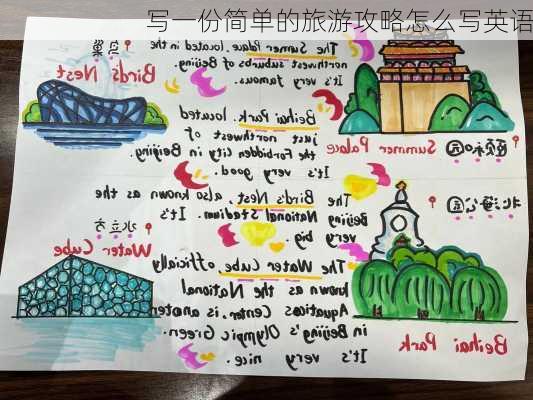 写一份简单的旅游攻略怎么写英语
The Sumer Palace. located in the
northwest suburbs of Beijing.
It's very famous.
Beihai Park. located
just northwest of
the Forbidden City in Beijing.
It's very good.
The Bird's Nest. also known as the
Beijing National Stadium. It's
very big.
The Water Cube officially
known as the National
Aquatics Center, is
in Beijing's Olympic Green.
It's very nice.
颐和园
Summer Palace
北海公园
Beihai Park
鸟巢
Bird's Nest
水立方
Water Cube